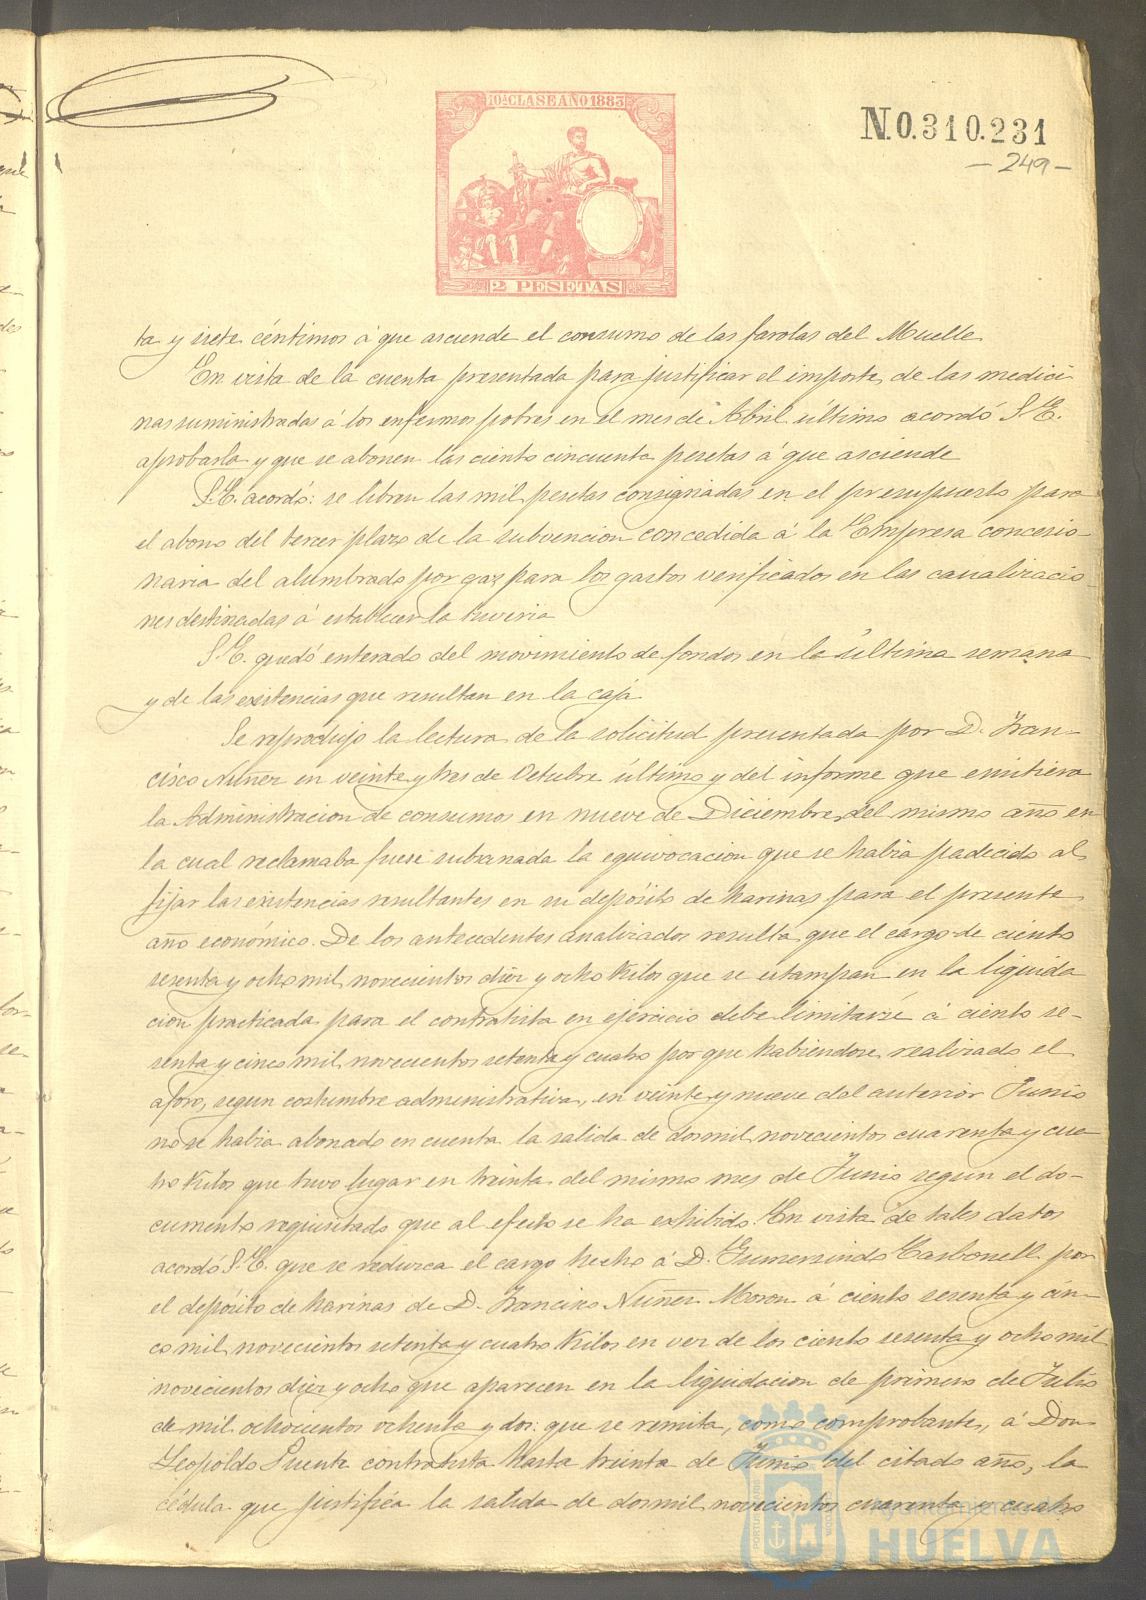 10ª CLASE AÑO 1883
2 PESETAS
N.0.310.231
- 249 -
ta y siete céntimos á que asciende el consumo de las farolas del Muelle
En vista de la cuenta presentada para justificar el importe de las medici
nas suministradas á los enfermos pobres en el mes de Abril último acordó S.E.
aprobarla y que se abonen las ciento cincuenta pesetas á que asciende
S.E. acordó: se libren las mil pesetas consignadas en el presupuesto para
el abono del tercer plazo de la subvencion concedida á la Empresa concesio-
naria del alumbrado por gaz para los gastos verificados en las canalizacio-
nes destinadas á establecer la tuveria
S.E. quedó enterado del movimiento de fondos en la última semana
y de las existencias que resultan en la caja
Se reprodujo la lectura de la solicitud presentada por D. Fran-
cisco Nuñez en veinte y tres de Octubre último y del informe que emitiera
la Administracion de consumos en nueve de Diciembre del mismo año en
la cual reclamaba fuese subsanada la equivocacion que se habia padecido al
fijar las existencias resultantes en su depósito de harinas para el presente
año económico. De los antecedentes analizados resulta que el cargo de ciento
sesenta y ocho mil novecientos diez y ocho kilos que se estampan en la liquida
cion practicada para el contratista en ejercicio debe limitarse á ciento se-
senta y cinco mil novecientos setenta y cuatro por que habiendose realizado el
aforo, segun costumbre administrativa, en veinte y nueve del anterior Junio
no se habia abonado en cuenta la salida de dos mil novecientos cuarenta y cua
tro kilos que tuvo lugar en treinta del mismo mes de Junio segun el do-
cumento requisitado que al efecto se ha exhibido. En vista de tales datos
acordó S.E. que se reduzca el cargo hecho á D. Gumersindo Carbonell por
el depósito de harinas de D. Francisco Nuñez Moron á ciento sesenta y cin-
co mil novecientos setenta y cuatro kilos en vez de los ciento sesenta y ocho mil
novecientos diez y ocho que aparecen en la liquidacion de primero de Julio
de mil ochocientos ochenta y dos: que se remita, como comprobante, á Don
Leopoldo Puente contratista hasta treinta de Junio del citado año, la
cédula que justifica la salida de dos mil novecientos cuarenta y cuatro
Ayuntamiento de
HUELVA